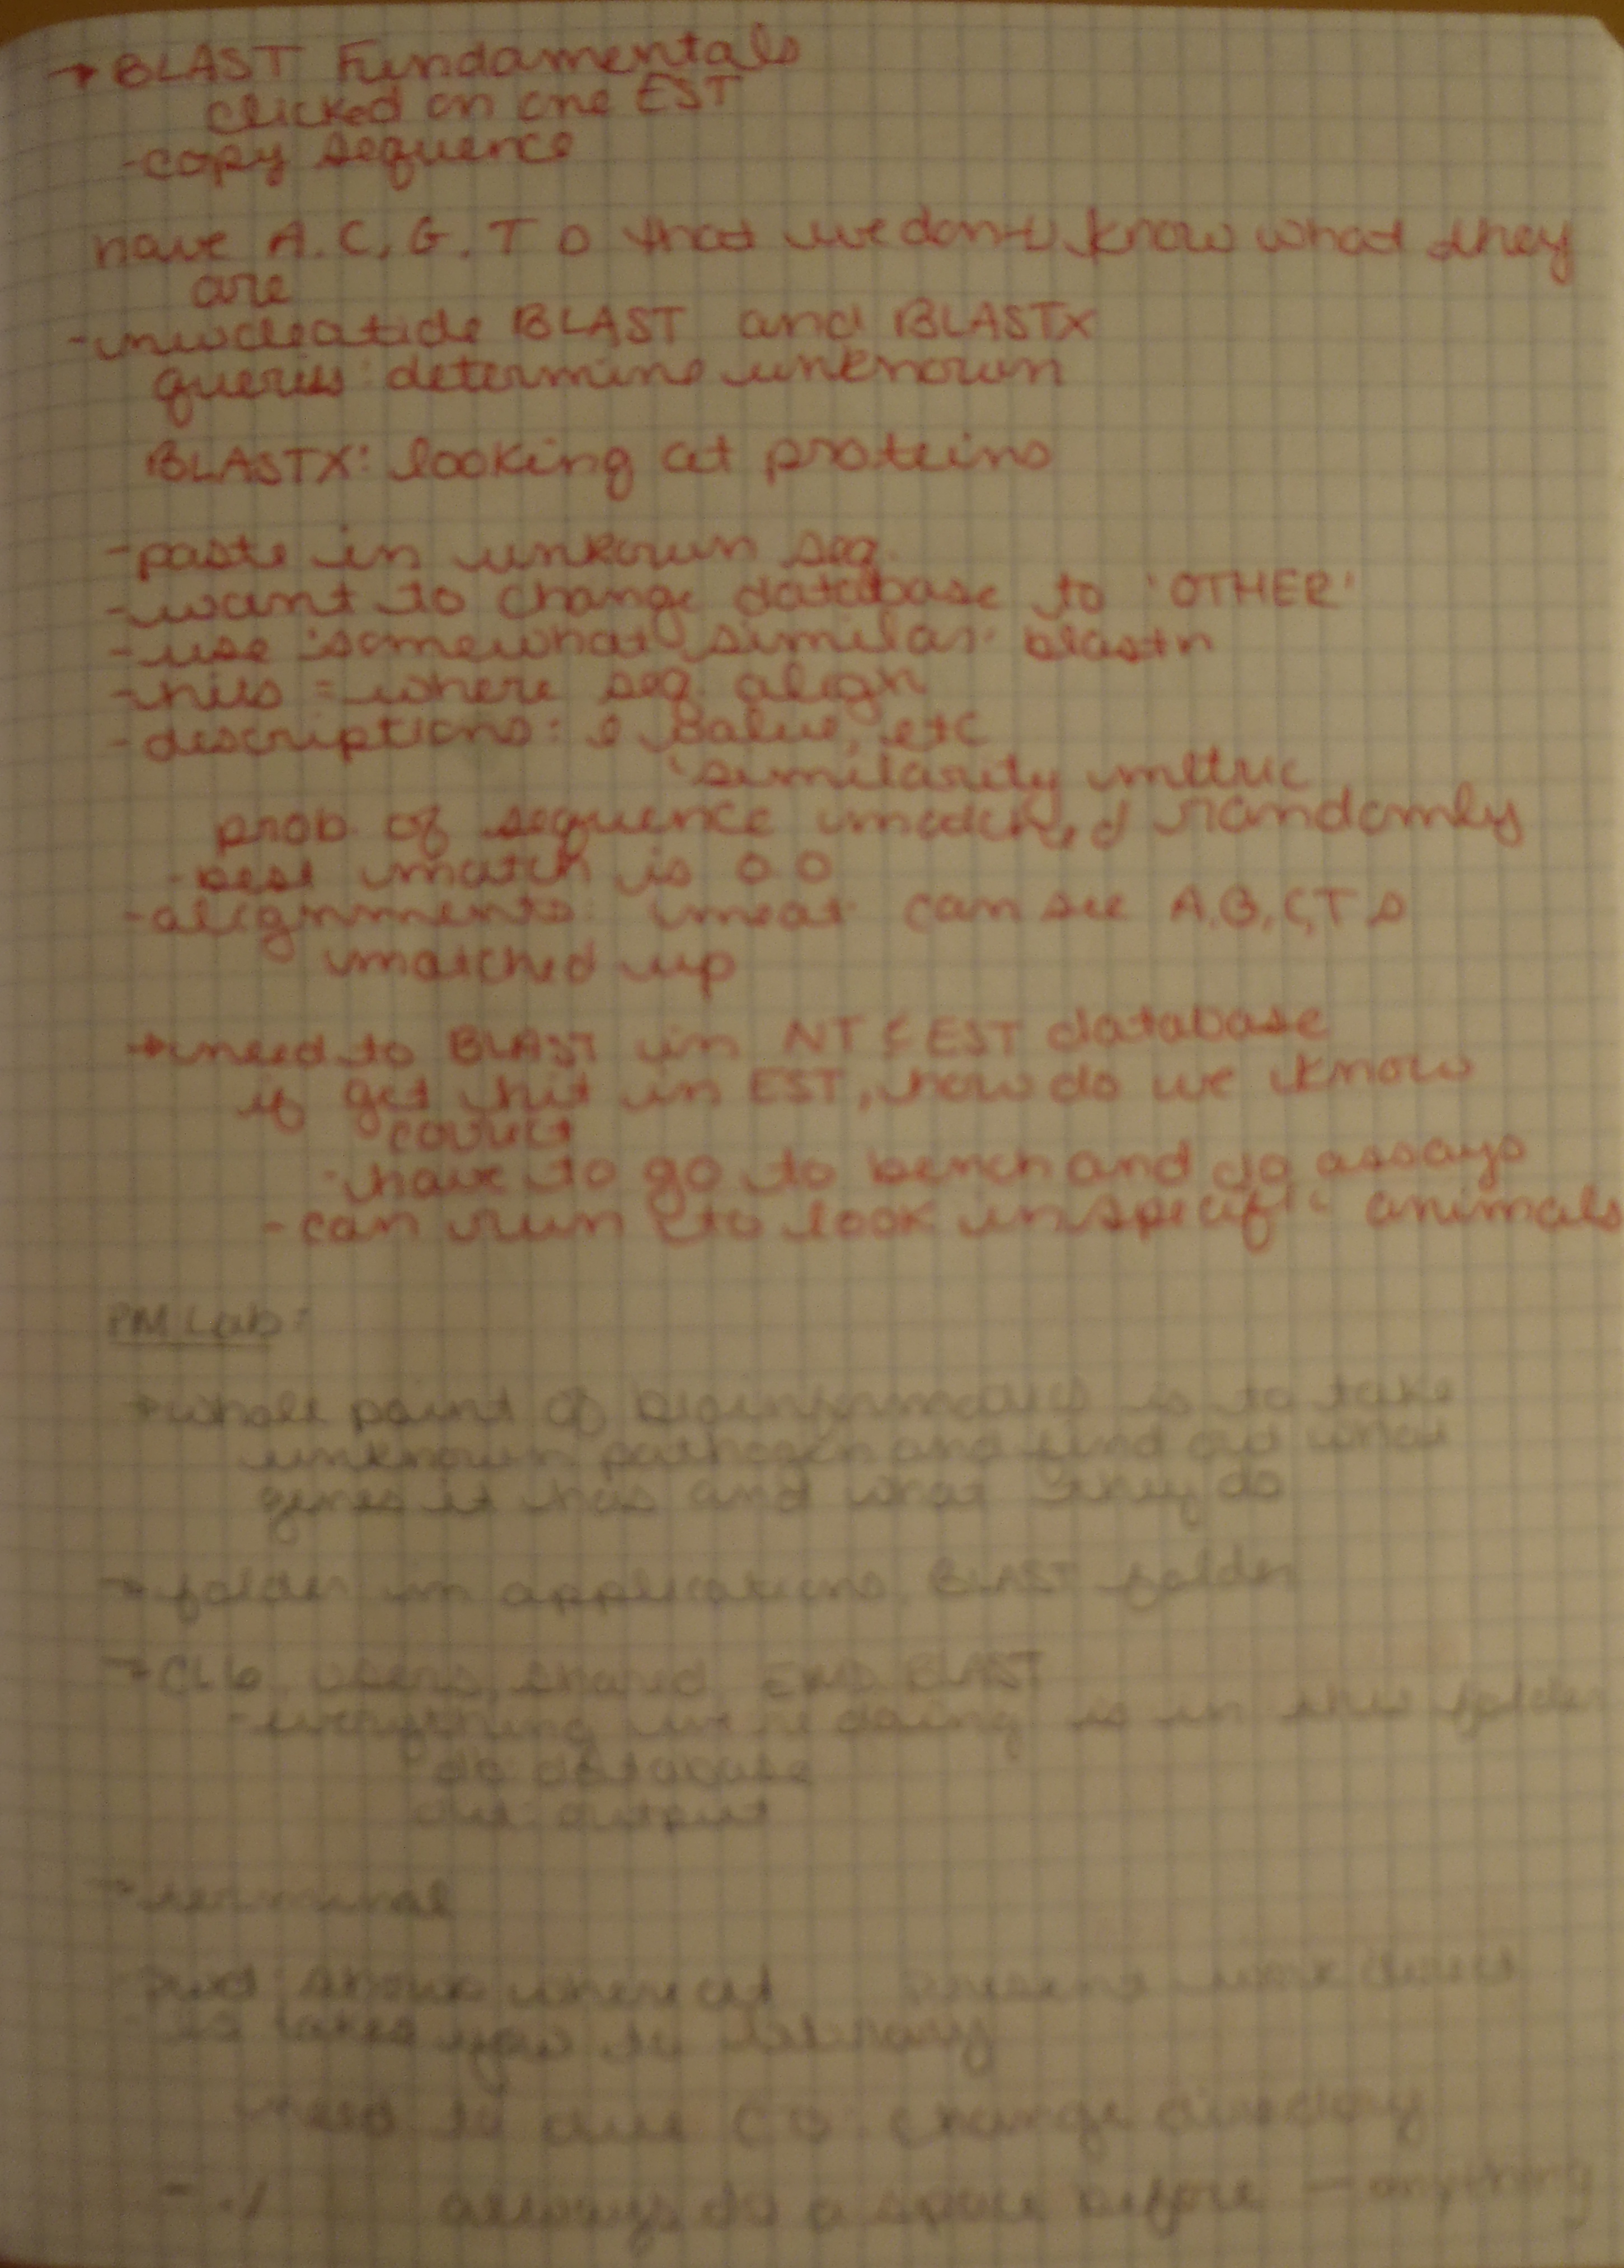 → BLAST Fundamentals
clicked on one EST
- copy sequence
have A, C, G, T s that we don't know what they
are
- nucleatide BLAST and BLASTX
queries: determine unknown
BLASTX: looking at proteins
- paste in unkown seq.
- want to change database to 'OTHER'
- use 'somewhat similar' blastn
- hits = where seq. align
- descriptions: e value, etc
similarity metric
prob. of sequence matched randomly
- best match is 0.0
- alignments: meat can see A,G,C,T s
matched up
→ need to BLAST in NT & EST database
if get hit in EST, how do we know
correct
- have to go to bench and do assays
- can run to look in specific animals
PM Lab:
→ whole point of bioinformatics is to take
unknown pathogen and find out what
genes it has and what they do
→ folder in applications, BLAST folder
→ users, shared, BLAST
- everything we're doing is in this folder
db database
out: output
→ terminal
pwd: shows where at present work direct
ls takes you to library
need to CD: change directory
- ./ always do a space before — anything